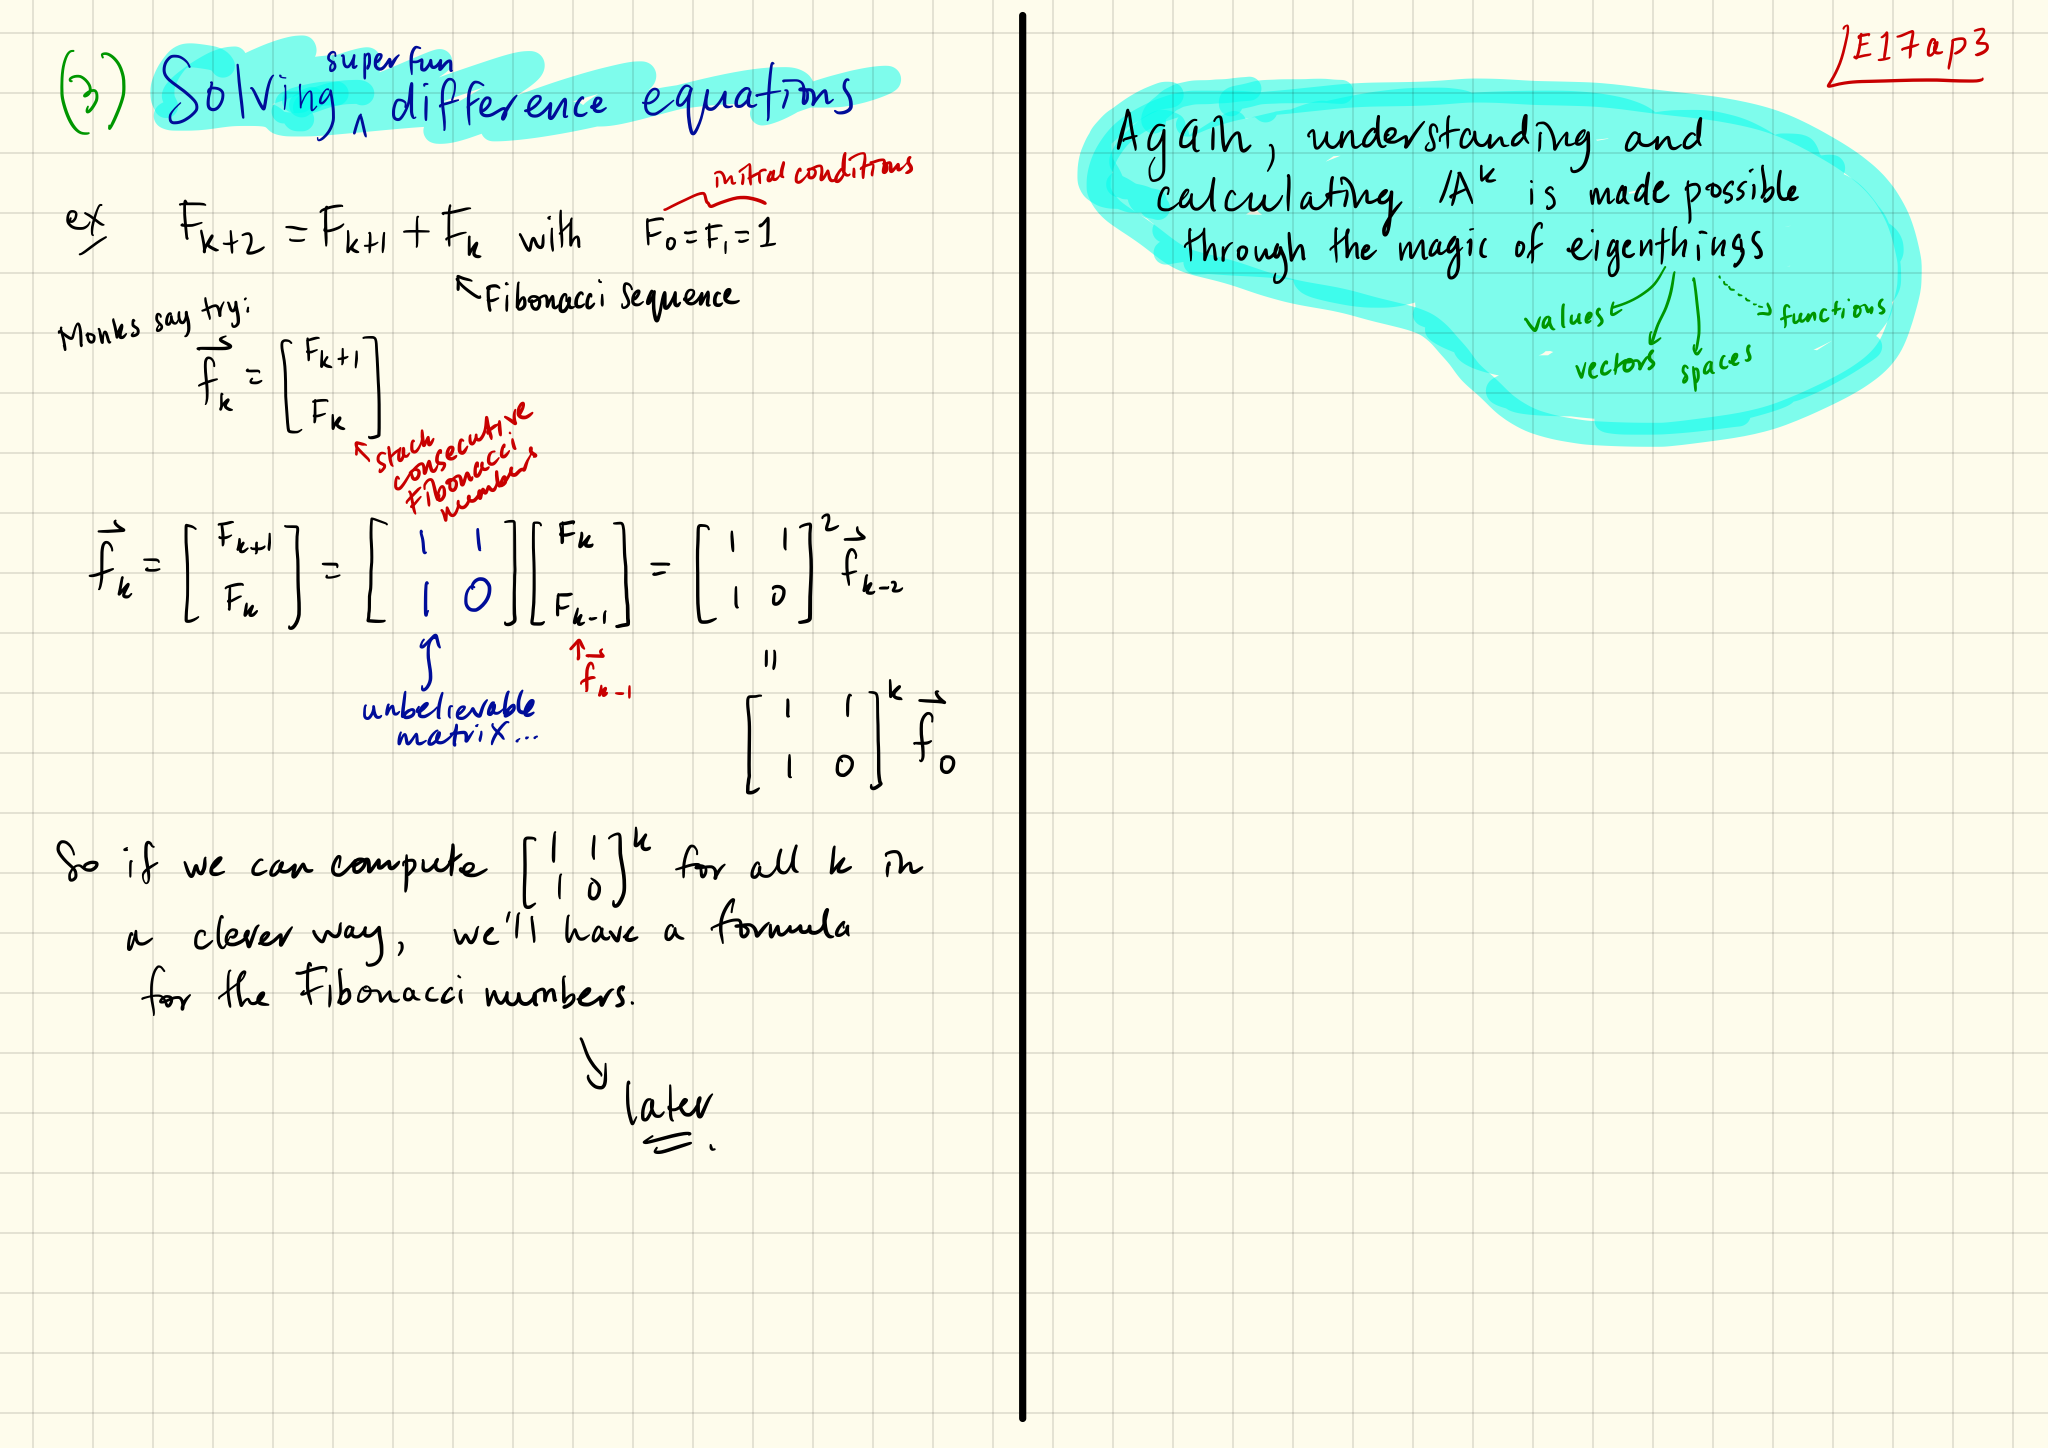 (3) Solving super fun difference equations
initial conditions
ex F_{k+2} = F_{k+1} + F_k with F_0 = F_1 = 1
↖ Fibonacci Sequence
Monks say try:
\vec{f}_k = [F_{k+1}; F_k]
↖ stack
consecutive
Fibonacci
numbers
\vec{f}_k = [F_{k+1}; F_k] = [1 1; 1 0] [F_k; F_{k-1}] = [1 1; 1 0]^2 \vec{f}_{k-2}
↑ \vec{f}_{k-1}
unbelievable
matrix...
= [1 1; 1 0]^k \vec{f}_0
So if we can compute [1 1; 1 0]^k for all k in
a clever way, we'll have a formula
for the Fibonacci numbers.
↘ later.
E17ap3
Again, understanding and
calculating A^k is made possible
through the magic of eigenthings
values
vectors
spaces
functions